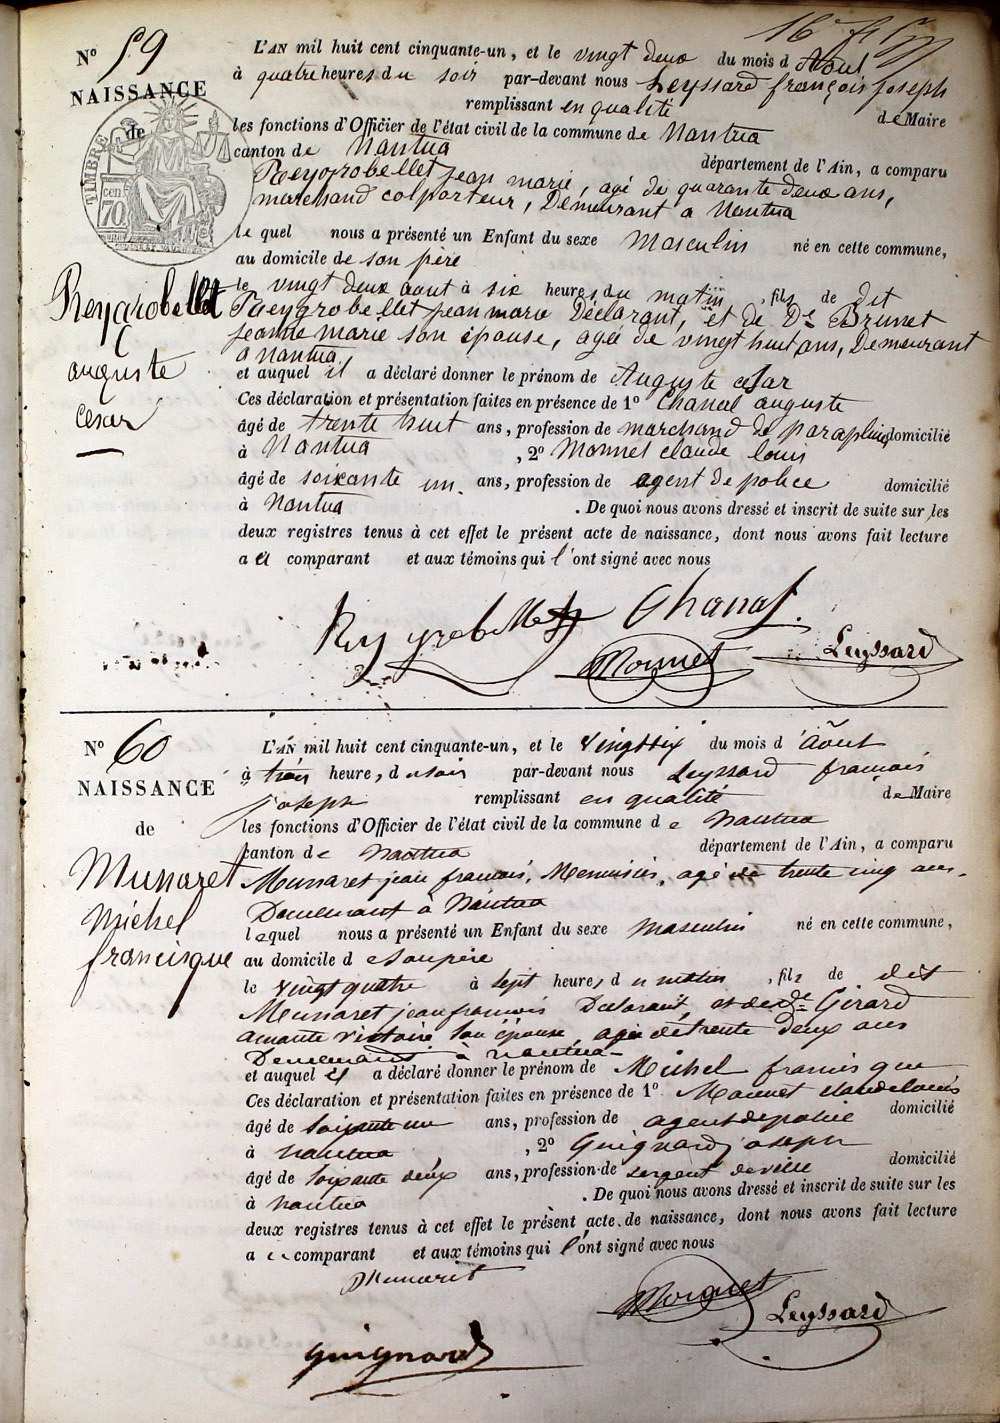 16e
N° 59
NAISSANCE
de
TIMBRE
cen 70
Reygrobellet
auguste
César
L'AN mil huit cent cinquante-un, et le vingt deux du mois d Août
à quatre heures du soir par-devant nous Leyssard françois joseph
remplissant en qualité de Maire
les fonctions d'Officier de l'état civil de la commune de Nantua
canton de Nantua département de l'Ain, a comparu
Reygrobellet jean marie, agé de quarante deux ans,
marchand colporteur, Demeurant a Nantua
le quel nous a présenté un Enfant du sexe Masculin né en cette commune,
au domicile de son père
le vingt deux aout à six heures du matin, fils de dit
Reygrobellet jean marie Déclarant, et de De Brunet
jeanne marie son épouse, agée de vingt huit ans, Demeurant
a Nantua
et auquel il a déclaré donner le prénom de Auguste césar
Ces déclaration et présentation faites en présence de 1° Chanal auguste
âgé de trente huit ans, profession de marchand de parapluies domicilié
à Nantua , 2° Monnet claude louis
âgé de soixante un ans, profession de agent de police domicilié
à Nantua . De quoi nous avons dressé et inscrit de suite sur les
deux registres tenus à cet effet le présent acte de naissance, dont nous avons fait lecture
a u comparant et aux témoins qui l'ont signé avec nous
Reygrobellet Chanal.
Monnet Leyssard
N° 60
NAISSANCE
de
Munaret
Michel
francisque
L'AN mil huit cent cinquante-un, et le vingt six du mois d'Août
à trois heures du soir par-devant nous Leyssard francois
joseph remplissant en qualité de Maire
les fonctions d'Officier de l'état civil de la commune de Nantua
canton de Nantua département de l'Ain, a comparu
Munaret jean francois, Menuisier, agé de trente cinq ans.
Demeurant à Nantua
lequel nous a présenté un Enfant du sexe masculin né en cette commune,
au domicile de son père
le vingt quatre à sept heures du matin, fils de dit
Munaret jean francois Déclarant, et de De Girard
amante victoire son épouse, agée de trente deux ans
Demeurant à Nantua
et auquel il a déclaré donner le prénom de Michel francisque
Ces déclaration et présentation faites en présence de 1° Monnet claude louis
âgé de soixante un ans, profession de agent de police domicilié
à Nantua , 2° Guignard joseph
âgé de soixante deux ans, profession de sergent de ville domicilié
à Nantua . De quoi nous avons dressé et inscrit de suite sur les
deux registres tenus à cet effet le présent acte de naissance, dont nous avons fait lecture
a u comparant et aux témoins qui l'ont signé avec nous
Munaret
Monnet Leyssard
Guignard